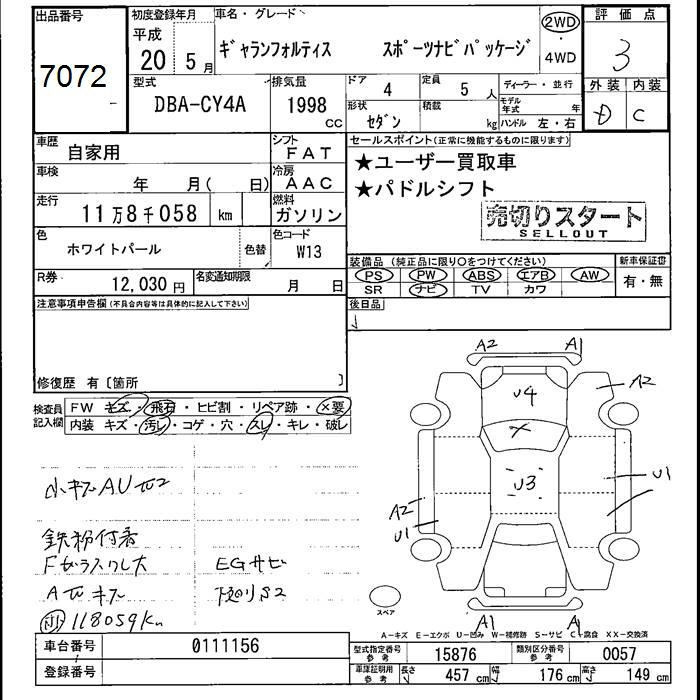 出品番号
7072
初度登録年月
平成
20 5月
車名・グレード
ギャランフォルティス スポーツナビパッケージ
2WD
・
4WD
評価点
3
外装 内装
D C
型式
DBA-CY4A
排気量
1998 CC
ドア 4
定員 5 人
ディーラー・並行
形状 セダン
積載 kg
モデル年式 年
ハンドル 左・右
車歴 自家用
シフト FAT
車検 年 月( 日)
冷房 AAC
走行 11万8千058 km
燃料 ガソリン
色 ホワイトパール 色替
色コード W13
R券 12,030円
名変通知期限 月 日
セールスポイント(正常に機能するものに限ります)
★ユーザー買取車
★パドルシフト
売切りスタート
SELLOUT
装備品(純正品に限り○をつけてください)
PS PW ABS エアB AW
SR ナビ TV カワ
新車保証書
有・無
注意事項申告欄(不具合内容等は具体的に記入して下さい)
後日品
修復歴 有〔箇所 〕
検査員記入欄
FW キズ・飛石・ヒビ割・リペア跡・X要
内装 キズ・汚レ・コゲ・穴・スレ・キレ・破レ
小キズAU
鉄粉付着
Fガラス
EGサビ
下廻りS2
118059Km
A2 A1
U4
A2
X
U3
U1
A2
U1
A1 A1
スペア
A-キズ E-エクボ U-凹み W-補修跡 S-サビ C-腐食 XX-交換済
車台番号 0111156
登録番号
型式指定番号 参考 15876
類別区分番号 参考 0057
車庫証明用 参考 長さ 457 cm 幅 176 cm 高さ 149 cm